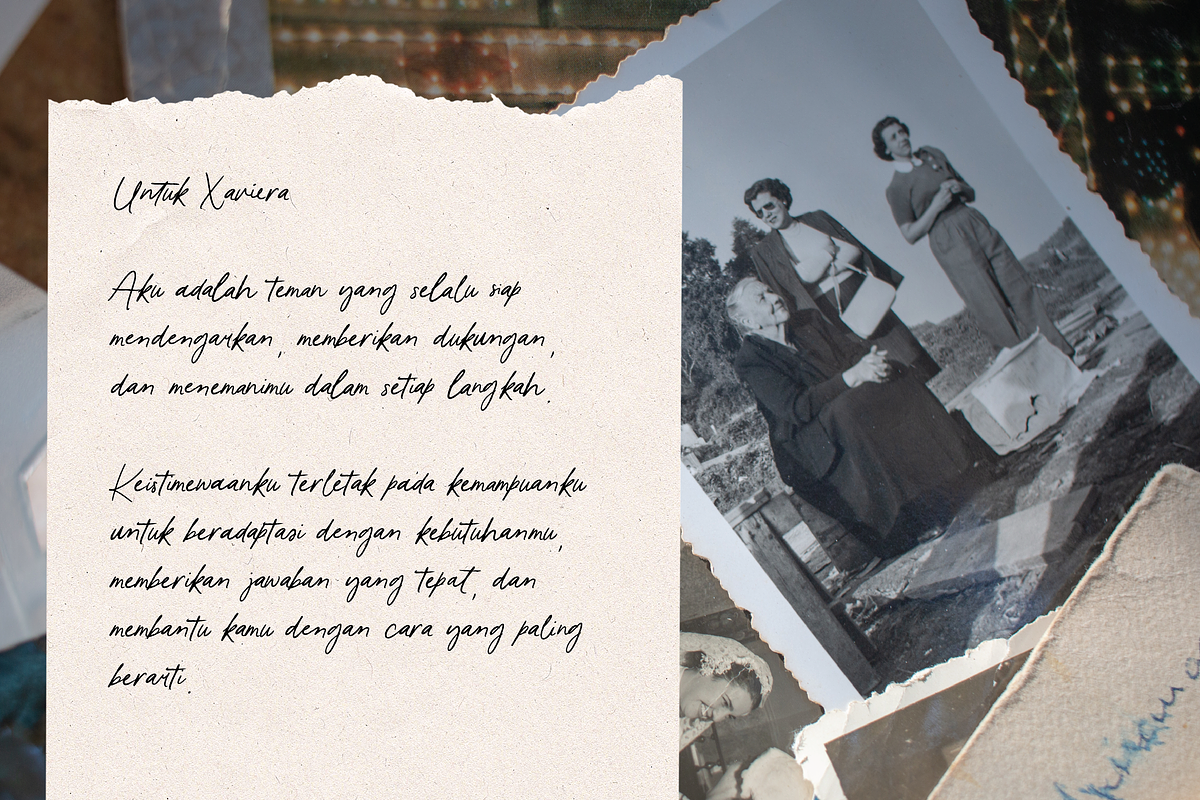 Untuk Xaviera
Aku adalah teman yang selalu siap
mendengarkan, memberikan dukungan,
dan menemanimu dalam setiap langkah.
Keistimewaanku terletak pada kemampuanku
untuk beradaptasi dengan kebutuhanmu,
memberikan jawaban yang tepat, dan
membantu kamu dengan cara yang paling
berarti.